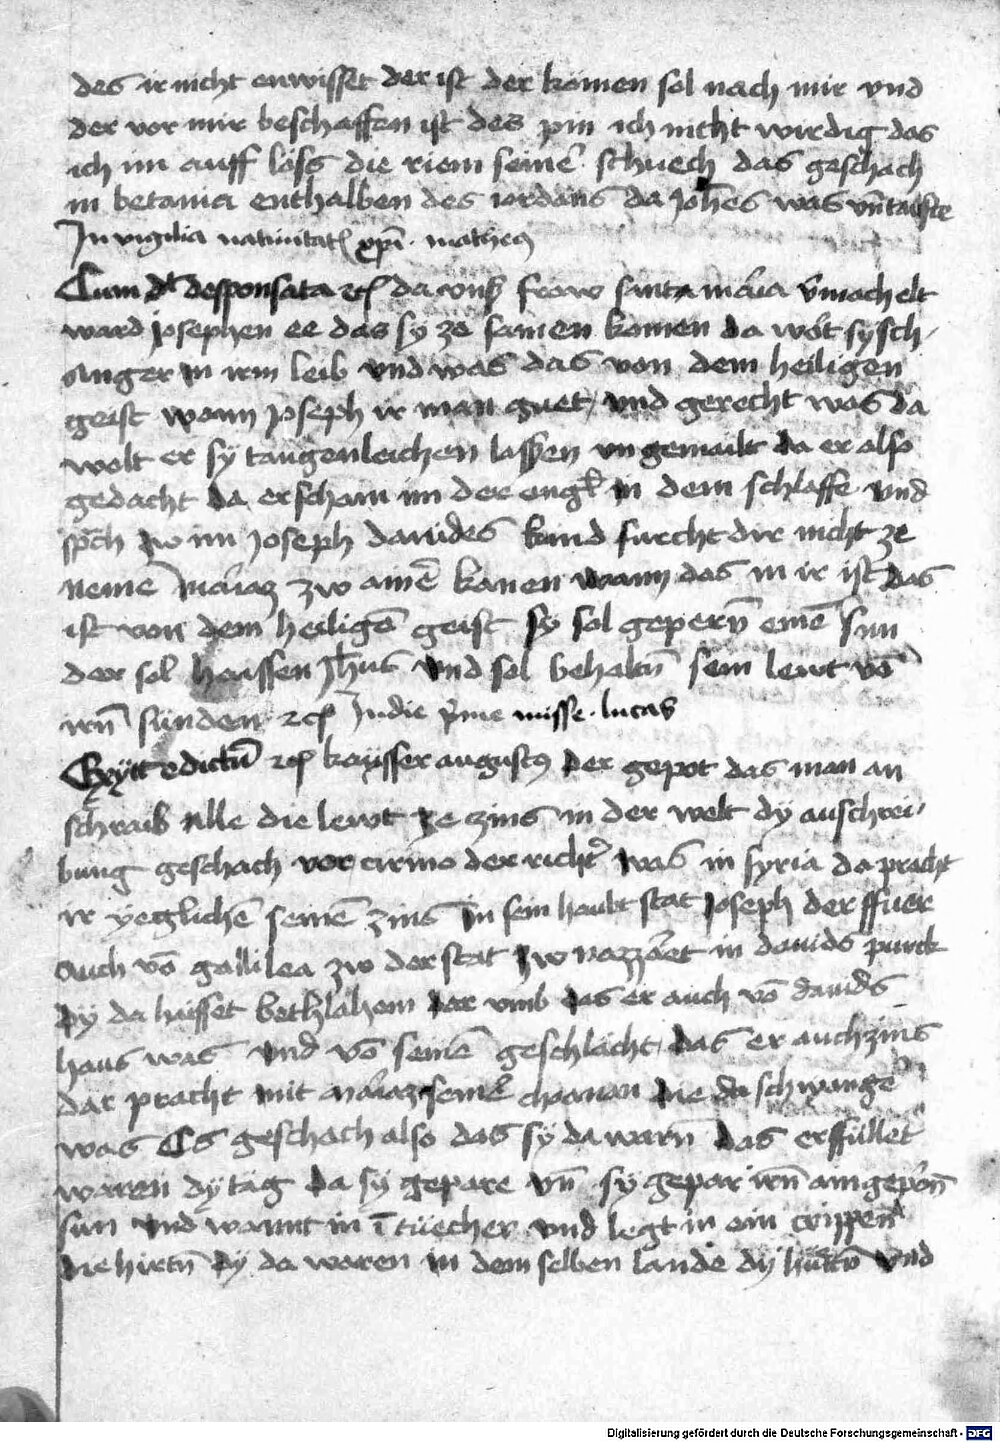 des ir nicht enwisset der ist der komen sol nach mir vnd
der vor mir beschaffen ist des pin ich nicht wirdig das
ich im auff löss die riem seiner schuech das geschach
in betania enthalben des iordans da Joħes was vn̄ tauffte
In vigilia natiuitat̄ xp̄i · matheus
Cum desponsata etc̄ da vnß fraw santa maria v̄machelt
ward Josephen ee das sy ze samen komen da wart sy sch-
anger in irm leib vnd was das von dem heiligen
geist wann Joseph ir man guet vnd gerecht was da
wolt er sy taugenleichen lassen vn gemailt da er also
gedacht da erscham im der engl in dem schlaffe vnd
sp̄ch zw im Joseph dauides kind furcht dir nicht ze
neme̅ maria̅ zw aine̅ konen wann das in ir ist das
ist von dem heilige̅ geist sy sol geper̅n eine̅ sun
der sol haissen Jħus vnd sol behalt̅n sein lewt vo̅
ir̅n sünden etc̄ In die p̄me misse · lucas
Exyit edictu̅ etc̄ kaysser augustus der gepot das man an
schraib alle die lewt ze zins in der welt dy anschrei-
bung geschach vor cirino der richt̄ was in syria da pracht
ir yegliche̅ seine̅ zins in sein haubt stat Joseph der ffuer
auch vo̅ gallilea zw der stat zw nazaret in dauids purck
dy da haisset bethlahem dar vmb das er auch vo̅ dauids
haus was vnd vo̅ seine̅ geschlächt das er auch zins
dar pracht mit maria̅ seine̅ chonan die da schwange̅
was Es geschach also das sy da war̅n das erffüllet
waren dy täg da sy gepare vn̅ sy gepar ir̅n ain gepor̅n
sun vnd wannt in i̅ tüecher vnd legt in ain crippen
die hirt̅n dy da waren in dem selben lande dy hütt̅n vnd
Digitalisierung gefördert durch die Deutsche Forschungsgemeinschaft - DFG